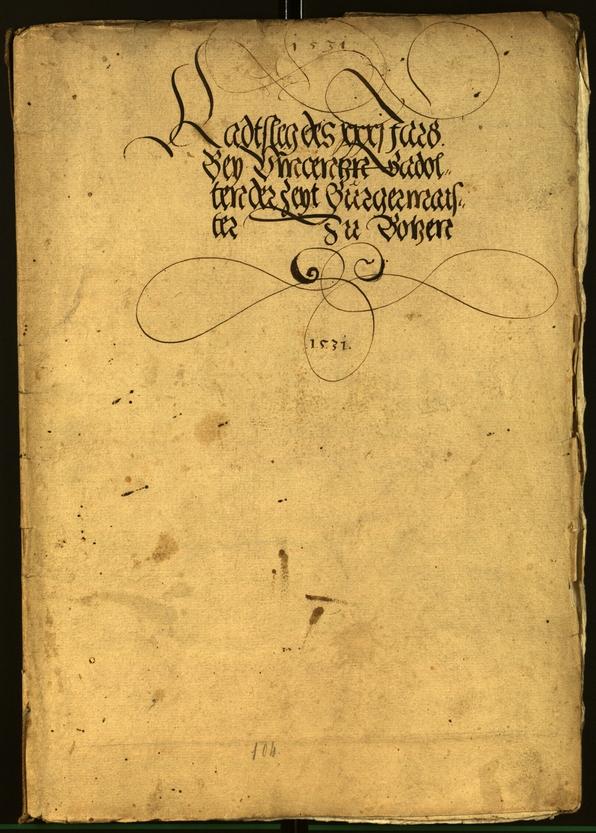 1531
Radtsleg des xxxj Jars.
Bey Vincentzn Gadol-
ten der Zeyt Burgermais-
ter Zu Botzen
1531.
104